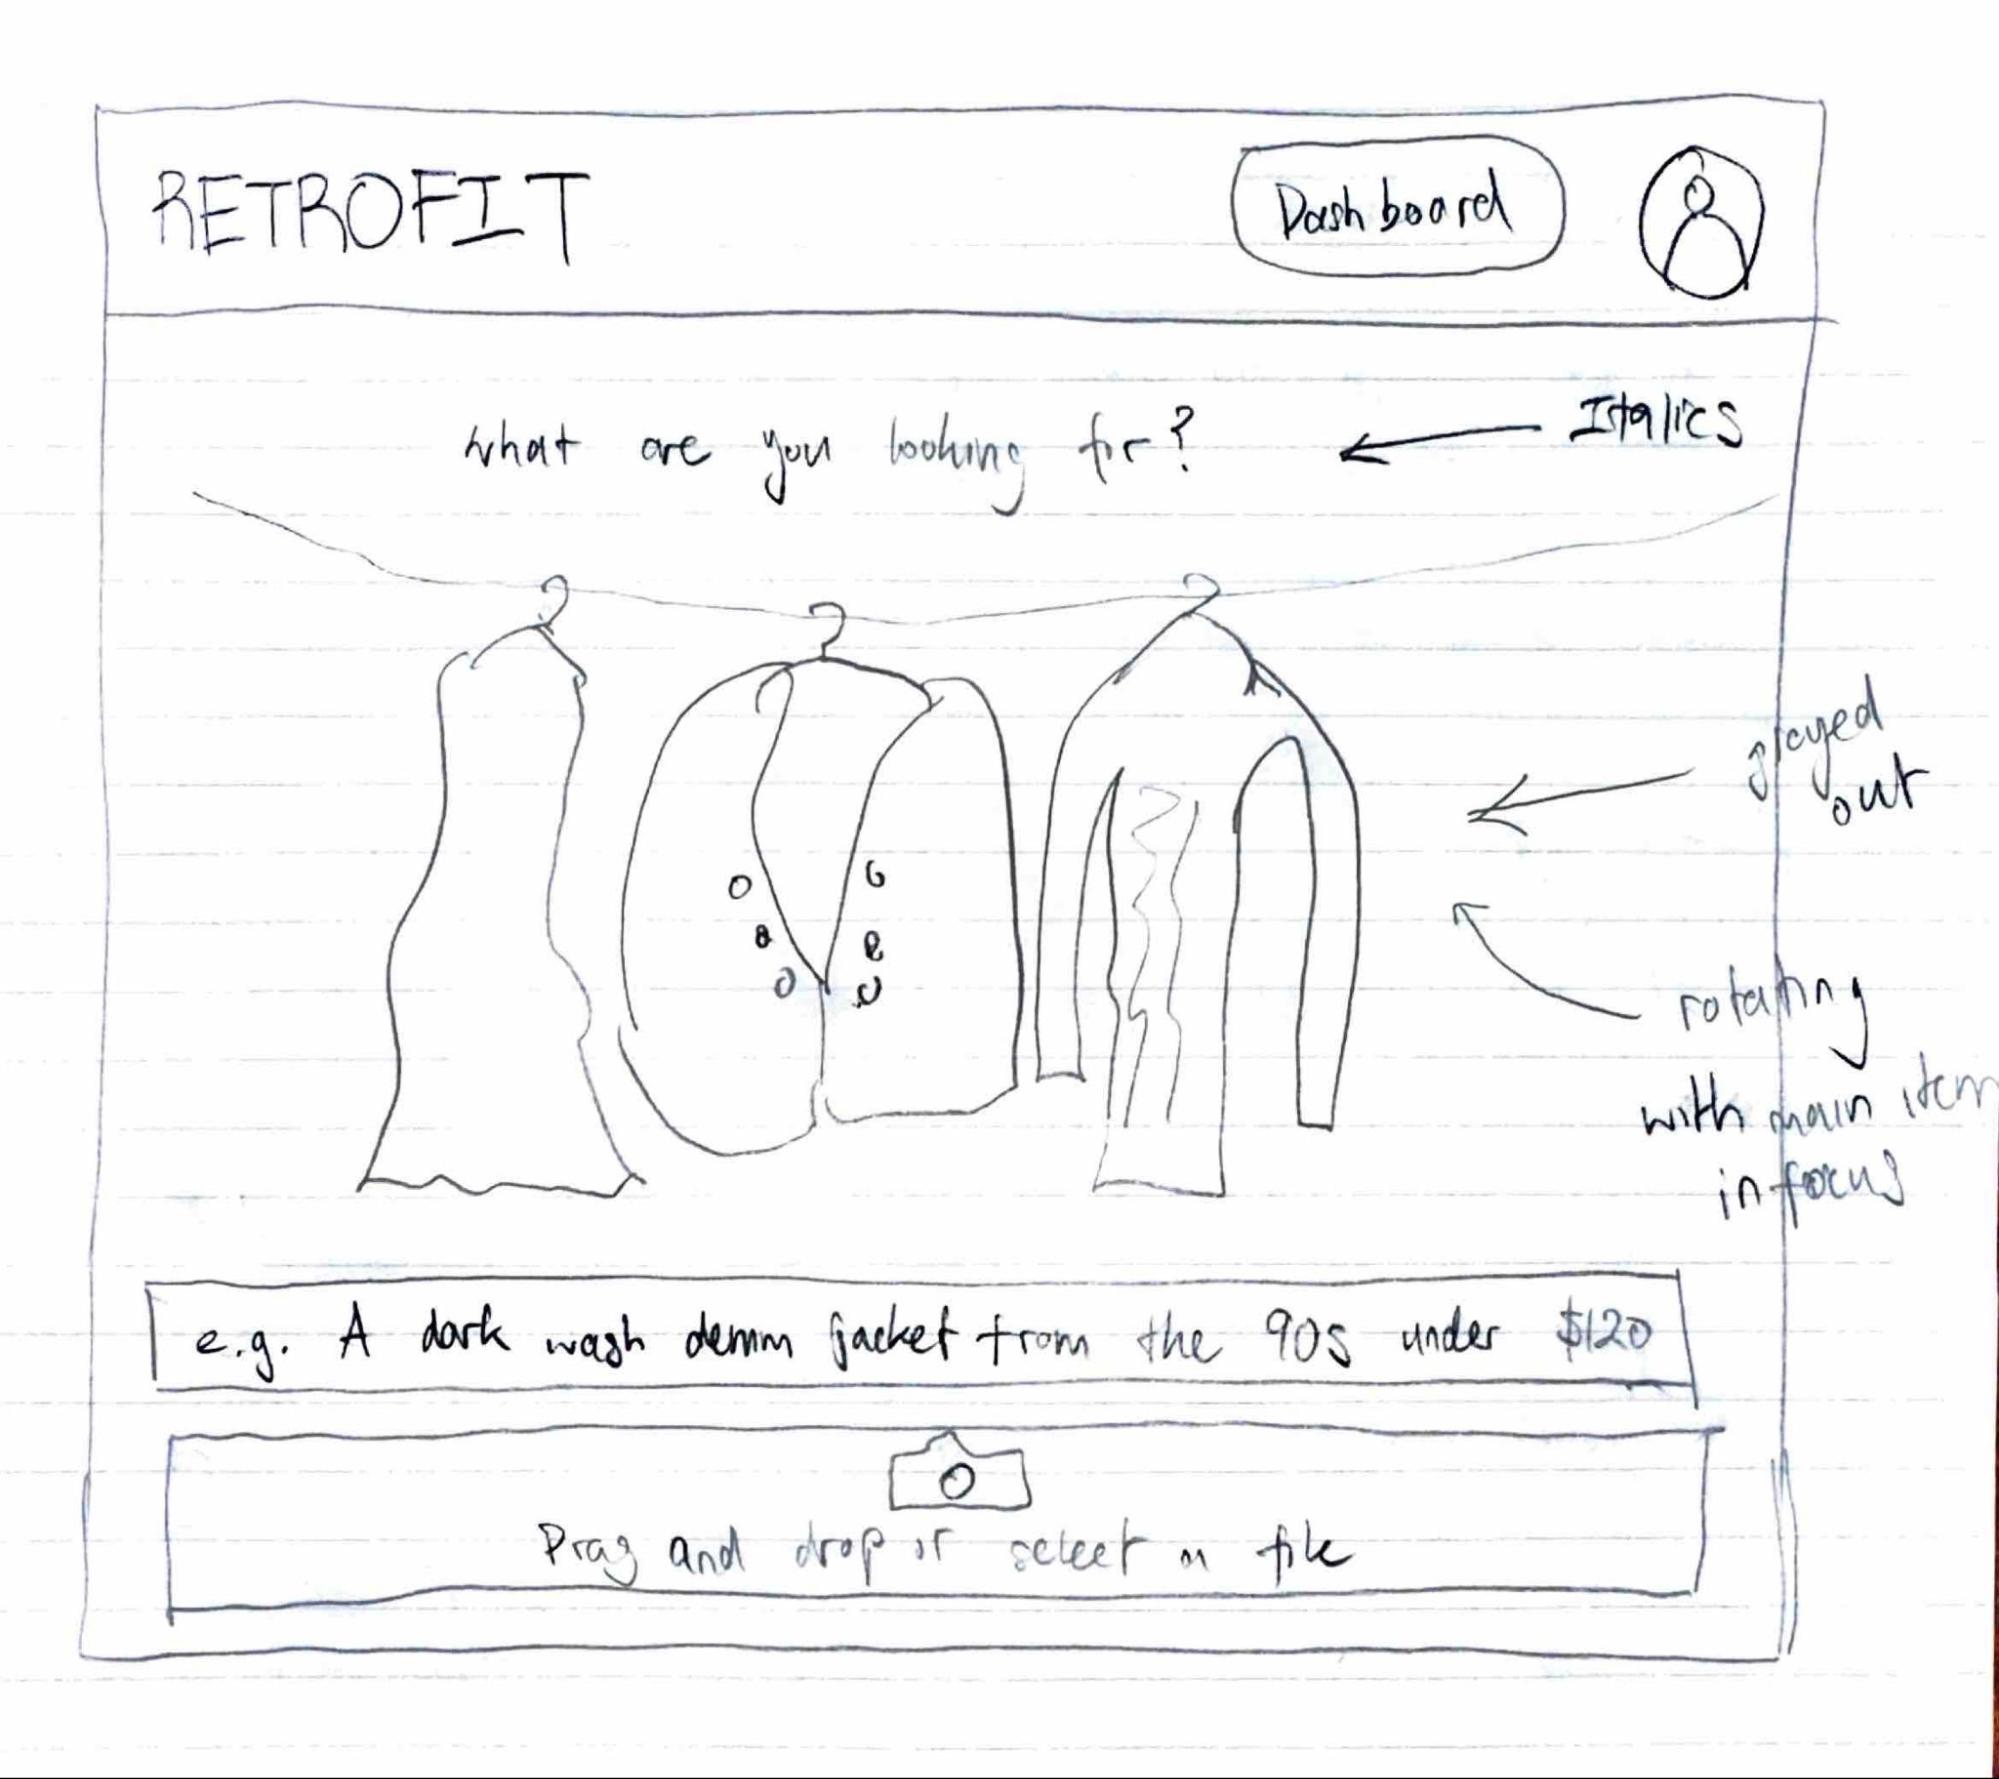 RETROFIT
Dashboard
what are you looking for?
Italics
grayed
out
rotating
with main item
in focus
e.g. A dark wash denim jacket from the 90s under $120
Drag and drop or select a file